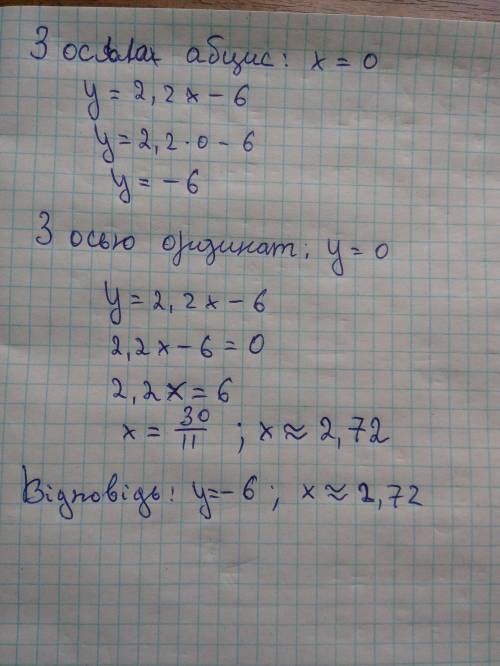 З осями абцис: x = 0
y = 2,2x - 6
y = 2,2·0 - 6
y = -6
З осью ординат; y = 0
y = 2,2x - 6
2,2x - 6 = 0
2,2x = 6
x = 30/11 ; x ≈ 2,72
Відповідь: y=-6 ; x ≈ 2,72